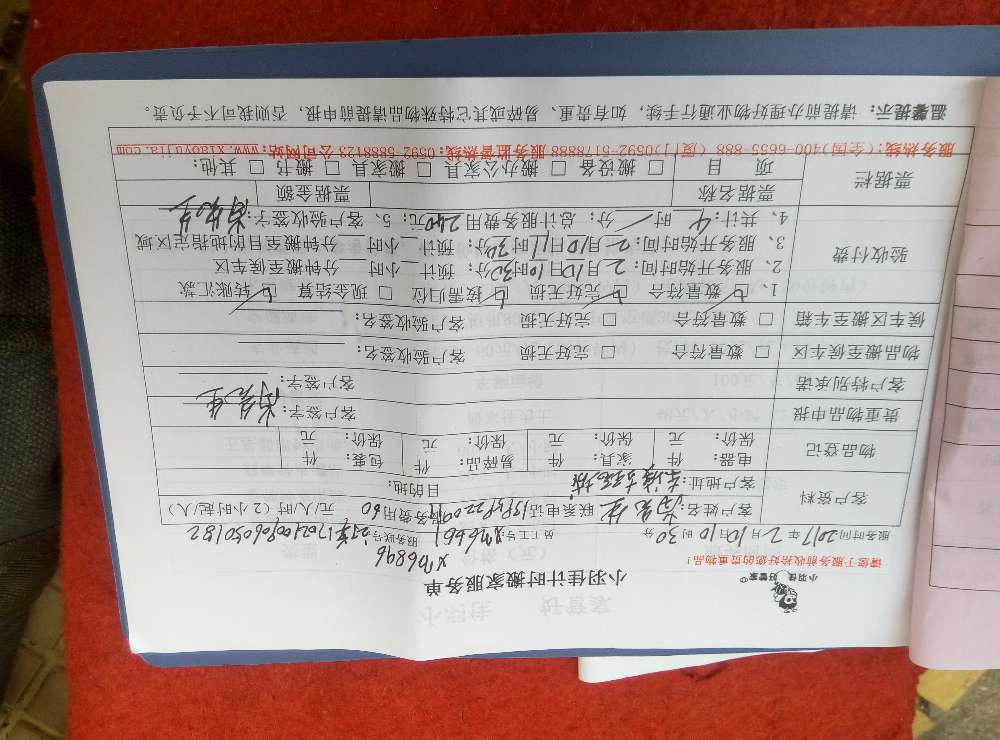 小羽佳 好管家
小羽佳计时搬家服务单
请您于服务前收拾好您的贵重物品!
XM6896
服务时间 2017年2月10日10时30分 员工工号: XM6661 服务联号:
客户资料 客户姓名: 联系电话: 服务费用 60 元/人/时(2小时起/人)
客户地址: 目的地:
物品登记 电器: 件 家具: 件 易碎品: 件 包装: 件
保价: 元 保价: 元 保价: 元 保价: 元
贵重物品申报 客户签字:
客户特别承诺 客户签字:
物品搬至候车区 □ 数量符合 □ 完好无损 客户验收签名:
候车区搬至车箱 □ 数量符合 □ 完好无损 客户验收签名:
验收付费 1、☑ 数量符合 ☑ 完好无损 ☑ 按需归位 □ 现金结算 ☑ 转账汇款
2、服务开始时间: 2月10日10时30分: 预计 小时 分钟搬至候车区
3、服务开始时间: 2月10日11时30分: 预计 小时 分钟搬至目的地指定区域
4、共计: 4时/分: 总计服务费用 240元: 5、客户验收签字:
票据栏 票据名称 票据金额
项目 □ 搬设备 □ 搬办公家具 □ 搬家具 □ 搬书 □ 其他:
服务热线:(全国)400-6655-888 (厦门)0592-5178888 服务监管热线:0592-5888123 公司网站:www.xiaoyujia.com
温馨提示:请提前办理好物业通行手续,如有贵重、易碎或其它特殊物品请提前申报,否则我司不予负责。